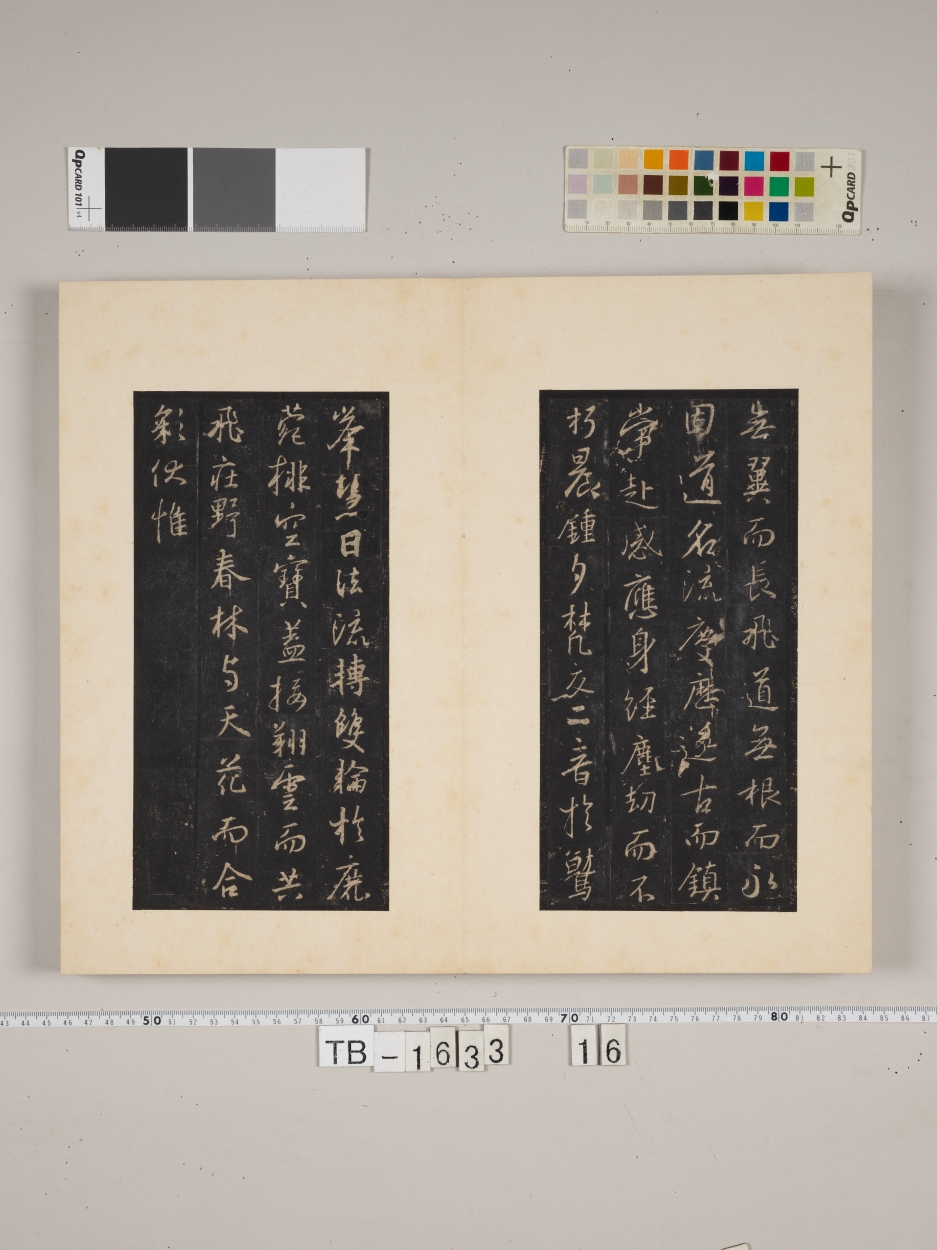 無翼而長飛道無根而永
固道名流慶歷遂古而鎮
常赴感應身經塵劫而不
朽晨鍾夕梵交二音於鷲
峯慧日法流轉雙輪於鹿
菀排空寶蓋接翔雲而共
飛莊野春林与天花而合
彩伏惟
QPCARD 101 v4
QPCARD 201
43 44 45 46 47 48 49 50 51 52 53 54 55 56 57 58 59 60 61 62 63 64 65 66 67 68 69 70 71 72 73 74 75 76 77 78 79 80 81 82 83 84 85 86 87
TB-1633 16